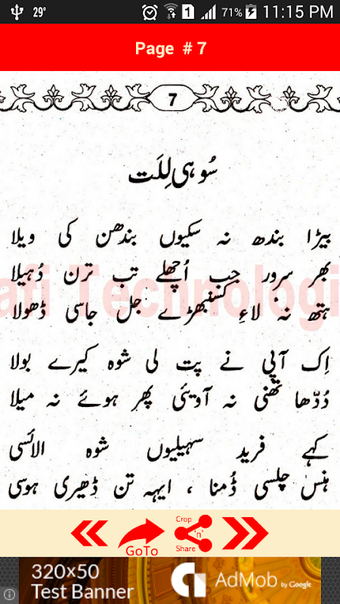 29°
1
71%
11:15 PM
Page # 7
7
سُوہی لِلَت
بیڑا بندھ نہ سکیوں بندھن کی ویلا
بھر سرور جب اُچھلے تب ترن دُہیلا
ہتھ نہ لاءِ کسنبھڑے جل جاسی ڈھولا
اِک آپی نے پت لی شوہ کیرے بولا
دُدّھا تھنی نہ آویئی پھر ہوئے نہ میلا
کہے فرید سہیلیوں شوہ الائسی
ہنس چلسی ڈُمنا ، ایہہ تن ڈھیری ہوسی
afi Technologi
GoTo
Crop
n
Share
320x50
Test Banner
AdMob by Google